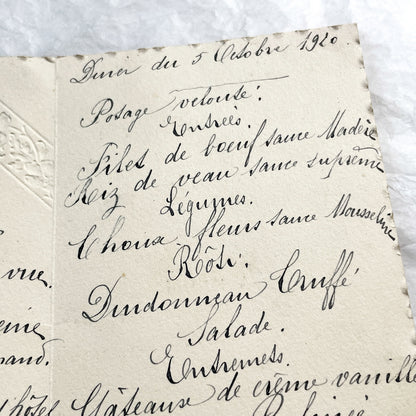 Diner du 5 Octobre 1920
Potage velouté.
Entrées.
Filets de boeuf sauce Madère
Riz de veau sauce suprême
Légumes.
Choux-fleurs sauce Mousseline
Rôti.
Dindonneau Truffé
Salade.
Entremets.
Gâteaux de crème vanille
vue.
d'hôtel